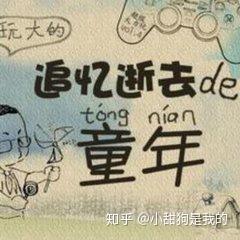 玩大的
追忆逝去de
tóng nián
童年
知乎 @小甜狗是我的